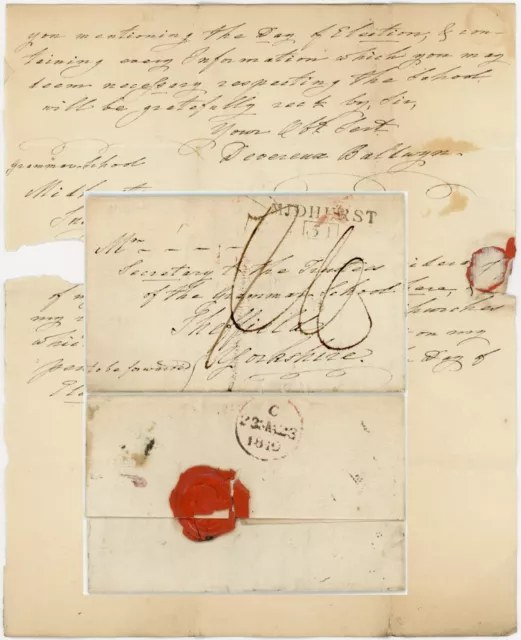 you mentioning the Day of Election, & con-
taining every Information which you may
deem necessary respecting the School
will be gratefully recd by, Sir,
Your Obt Sert
Devereux Baldwyn.
Grammar School
MIDHURST
51
Mr - - - -
Secretary to the Trustees
of the Grammar School
Sheffield
Yorkshire.
(to be forwarded)
of
my
on my
Day of
C
1819